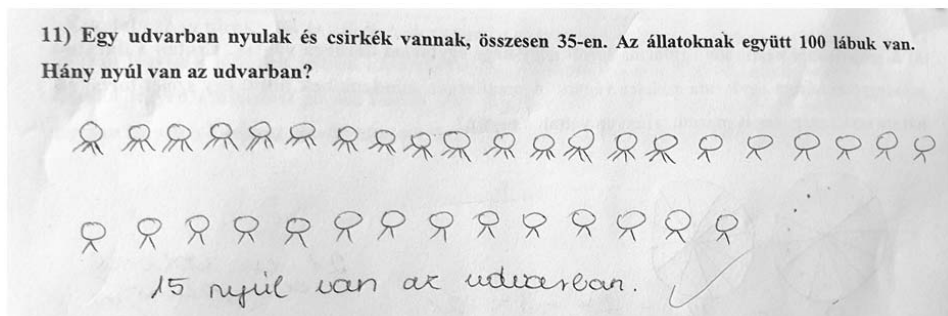 11) Egy udvarban nyulak és csirkék vannak, összesen 35-en. Az állatoknak együtt 100 lábuk van.
Hány nyúl van az udvarban?
15 nyúl van az udvarban.